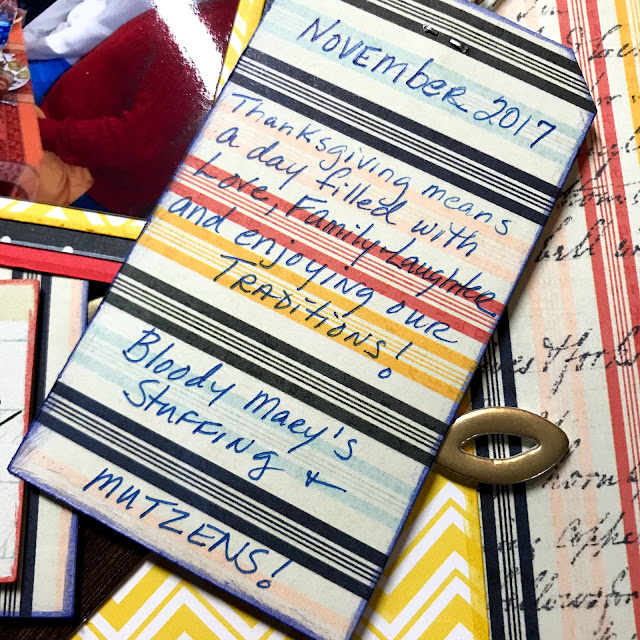 November 2017
Thanksgiving means
a day filled with
Love, Family, Laughter
and enjoying our
TRADITIONS!
Bloody Mary's
Stuffing &
MUTZENS!